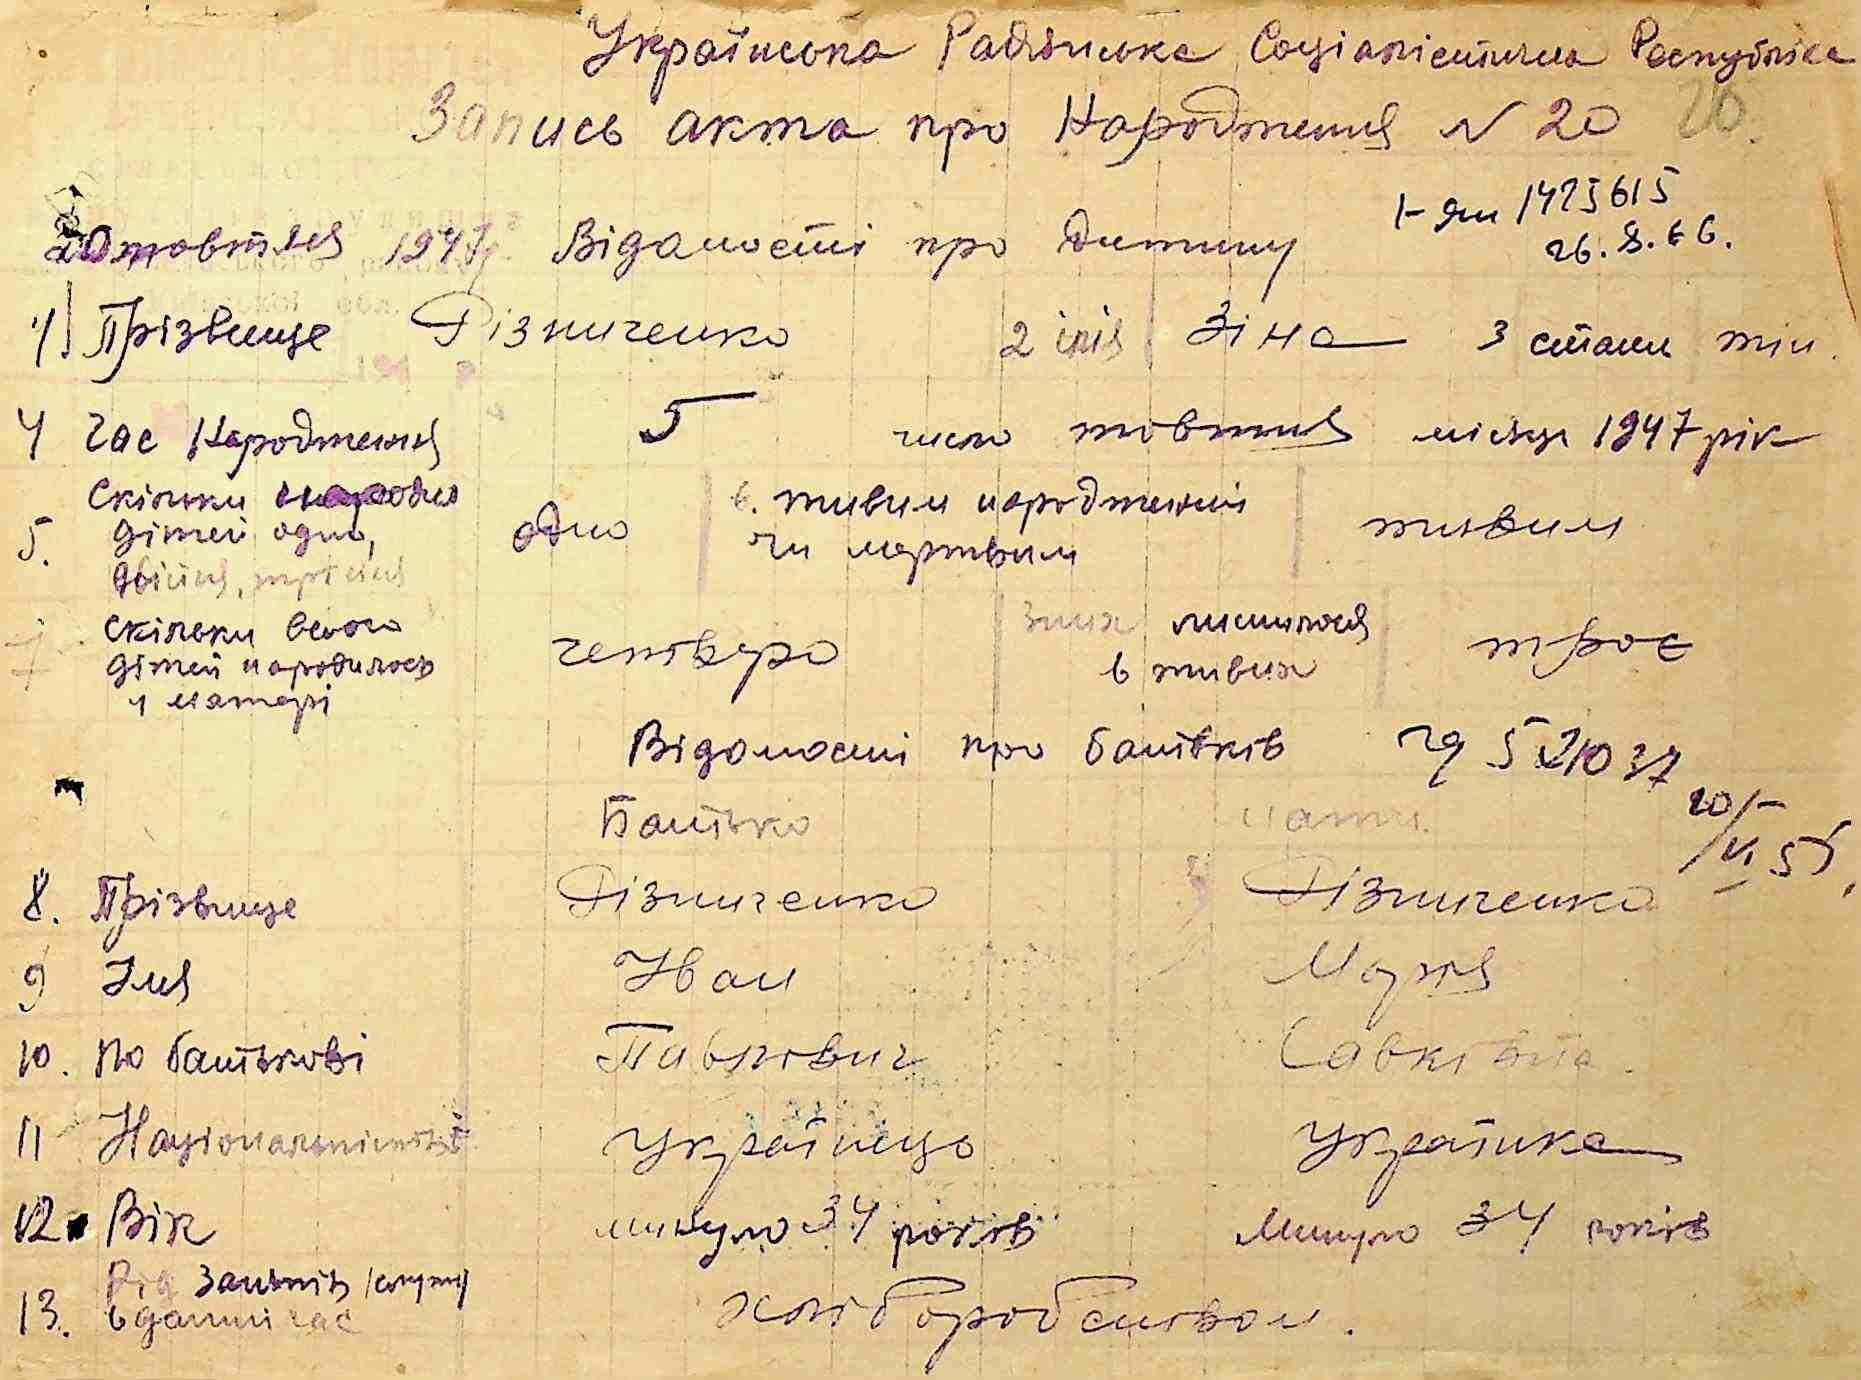 Українська Радянська Соціалістична Республіка
Запись акта про Народження N 20 20
20 жовтня 1947 Відомості про дитину
I-ЯШ 1425615
26.8.66.
1 Прізвище Різниченко 2 імя Зіна 3 стать жін.
4 Час Народження 5 число жовтня місяць 1947 рік
5. Скільки народжено дітей одно, двійня, трійня одно 6. живим народжений чи мертвим живим
7 Скільки всього дітей народилось у матері четверо З них лишилося в живих троє
Відомості про батьків 521037
Батько мати
20/VI 55
8. Прізвище Різниченко Різниченко
9 Імя Иван Марія
10. По батькові Павлович Савківна.
11 Національність Українець Українка
12. Вік минуло 34 років Минуло 34 років
13. Рід занятів /служби/ в данний час хліборобством.